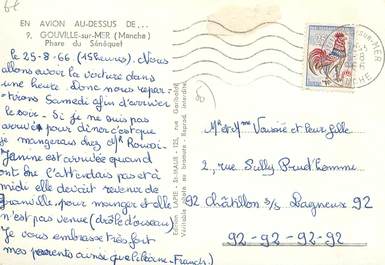 EN AVION AU-DESSUS DE...
9. GOUVILLE-sur-MER (Manche)
Phare du Sénéquet
le 25-8-66 (15 heures). Nous
allons avoir la voiture dans
une heure. Donc nous repar-
tirons Samedi afin d'arriver
le soir. Si je ne suis pas
arrivée pour dîner c'est que
je mangerais chez Mr
Janine est arrivée quand
ont ne l'attendais pas et à
midi elle devait revenir de
Granville pour manger et elle
n'est pas venue (drôle d'oiseau)
Je vous embrasse très fort
mes parents ainsi que
Edition LAPIE - St-MAUR - 125, rue Garibaldi
Véritable photo au bromure - Reprod. interdite
sur-MER
MANCHE
Mr et Mme et leur fille
2, rue Sully Prud'homme
92 Châtillon s/s Bagneux 92
92-92-92-92